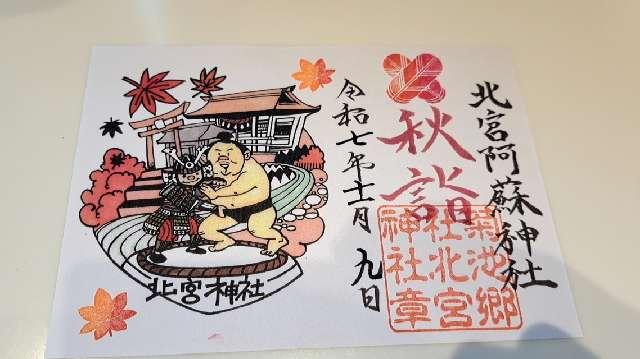 北宮阿蘇神社
秋詣
菊池郷
社北宮
神社章
令和七年十一月九日
北宮神社